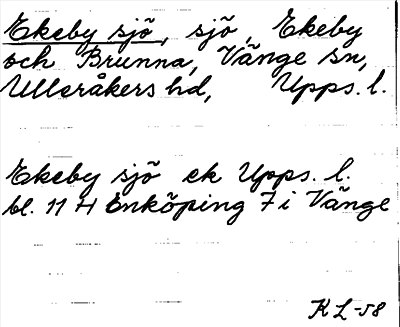 Ekeby sjö, sjö, Ekeby
och Brunna, Vänge sn,
Ulleråkers hd, Upps. l.
Ekeby sjö ek Upps. l.
bl. 11 H Enköping 7 i Vänge
KL-58